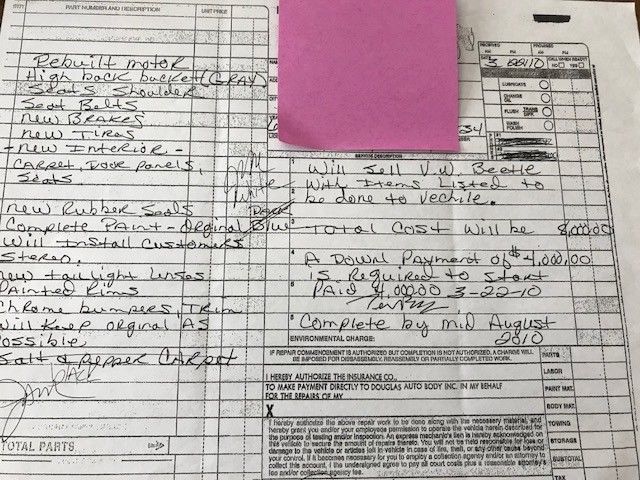 QTY. PART NUMBER AND DESCRIPTION UNIT PRICE
Rebuilt motor
High back bucket (GRAY)
Seats Shoulder
Seat Belts
new BRAKES
new TIRES
- new Interior -
CARPET, Door panels,
Seats.
new Rubber Seals
Complete PAint - Orginal Blue
DARK
Will Install Customers
Stereo.
new tailight Lenses
Painted Rims
Chrome bumpers, TRIM
Will Keep orginal AS
Possible.
Salt & Pepper CARPet
TOTAL PARTS
RECEIVED PROMISED
AM PM AM PM
DATE CALL WHEN READY?
NO YES
LUBRICATE
CHANGE OIL
FLUSH TRANS
WASH
POLISH
34
SERVICE DESCRIPTION
1 Will Sell V.W. Beetle
With Items Listed to
2 be done to Vechile.
3 TOTAL COST Will be 8,000.00
4 A Down Payment of $4,000.00
is Required to Start
5 PAID 4,000.00 3-22-10
6 Complete by mid August
2010
ENVIRONMENTAL CHARGE:
IF REPAIR COMMENCEMENT IS AUTHORIZED BUT COMPLETION IS NOT AUTHORIZED, A CHARGE WILL
BE IMPOSED FOR DISASSEMBLY, REASSEMBLY OR PARTIALLY COMPLETED WORK.
I HEREBY AUTHORIZE THE INSURANCE CO.,
TO MAKE PAYMENT DIRECTLY TO DOUGLAS AUTO BODY INC. IN MY BEHALF
FOR THE REPAIRS OF MY
X
I hereby authorize the above repair work to be done along with the necessary material, and
hereby grant you and/or your employees permission to operate the vehicle herein described for
the purpose of testing and/or inspection. An express mechanic's lien is hereby acknowledged on
this vehicle to secure the amount of repairs thereto. You will not be held responsible for loss or
damage to the vehicle or articles left in vehicle in case of fire, theft, or any other cause beyond
your control. If it becomes necessary for you to employ a collection agency and/or an attorney to
collect this account, I the undersigned agree to pay all court costs plus a reasonable attorney's
fee and/or collection agency fee.
PARTS
LABOR
PAINT MAT.
BODY MAT.
TOWING
STORAGE
SUBTOTAL
TAX